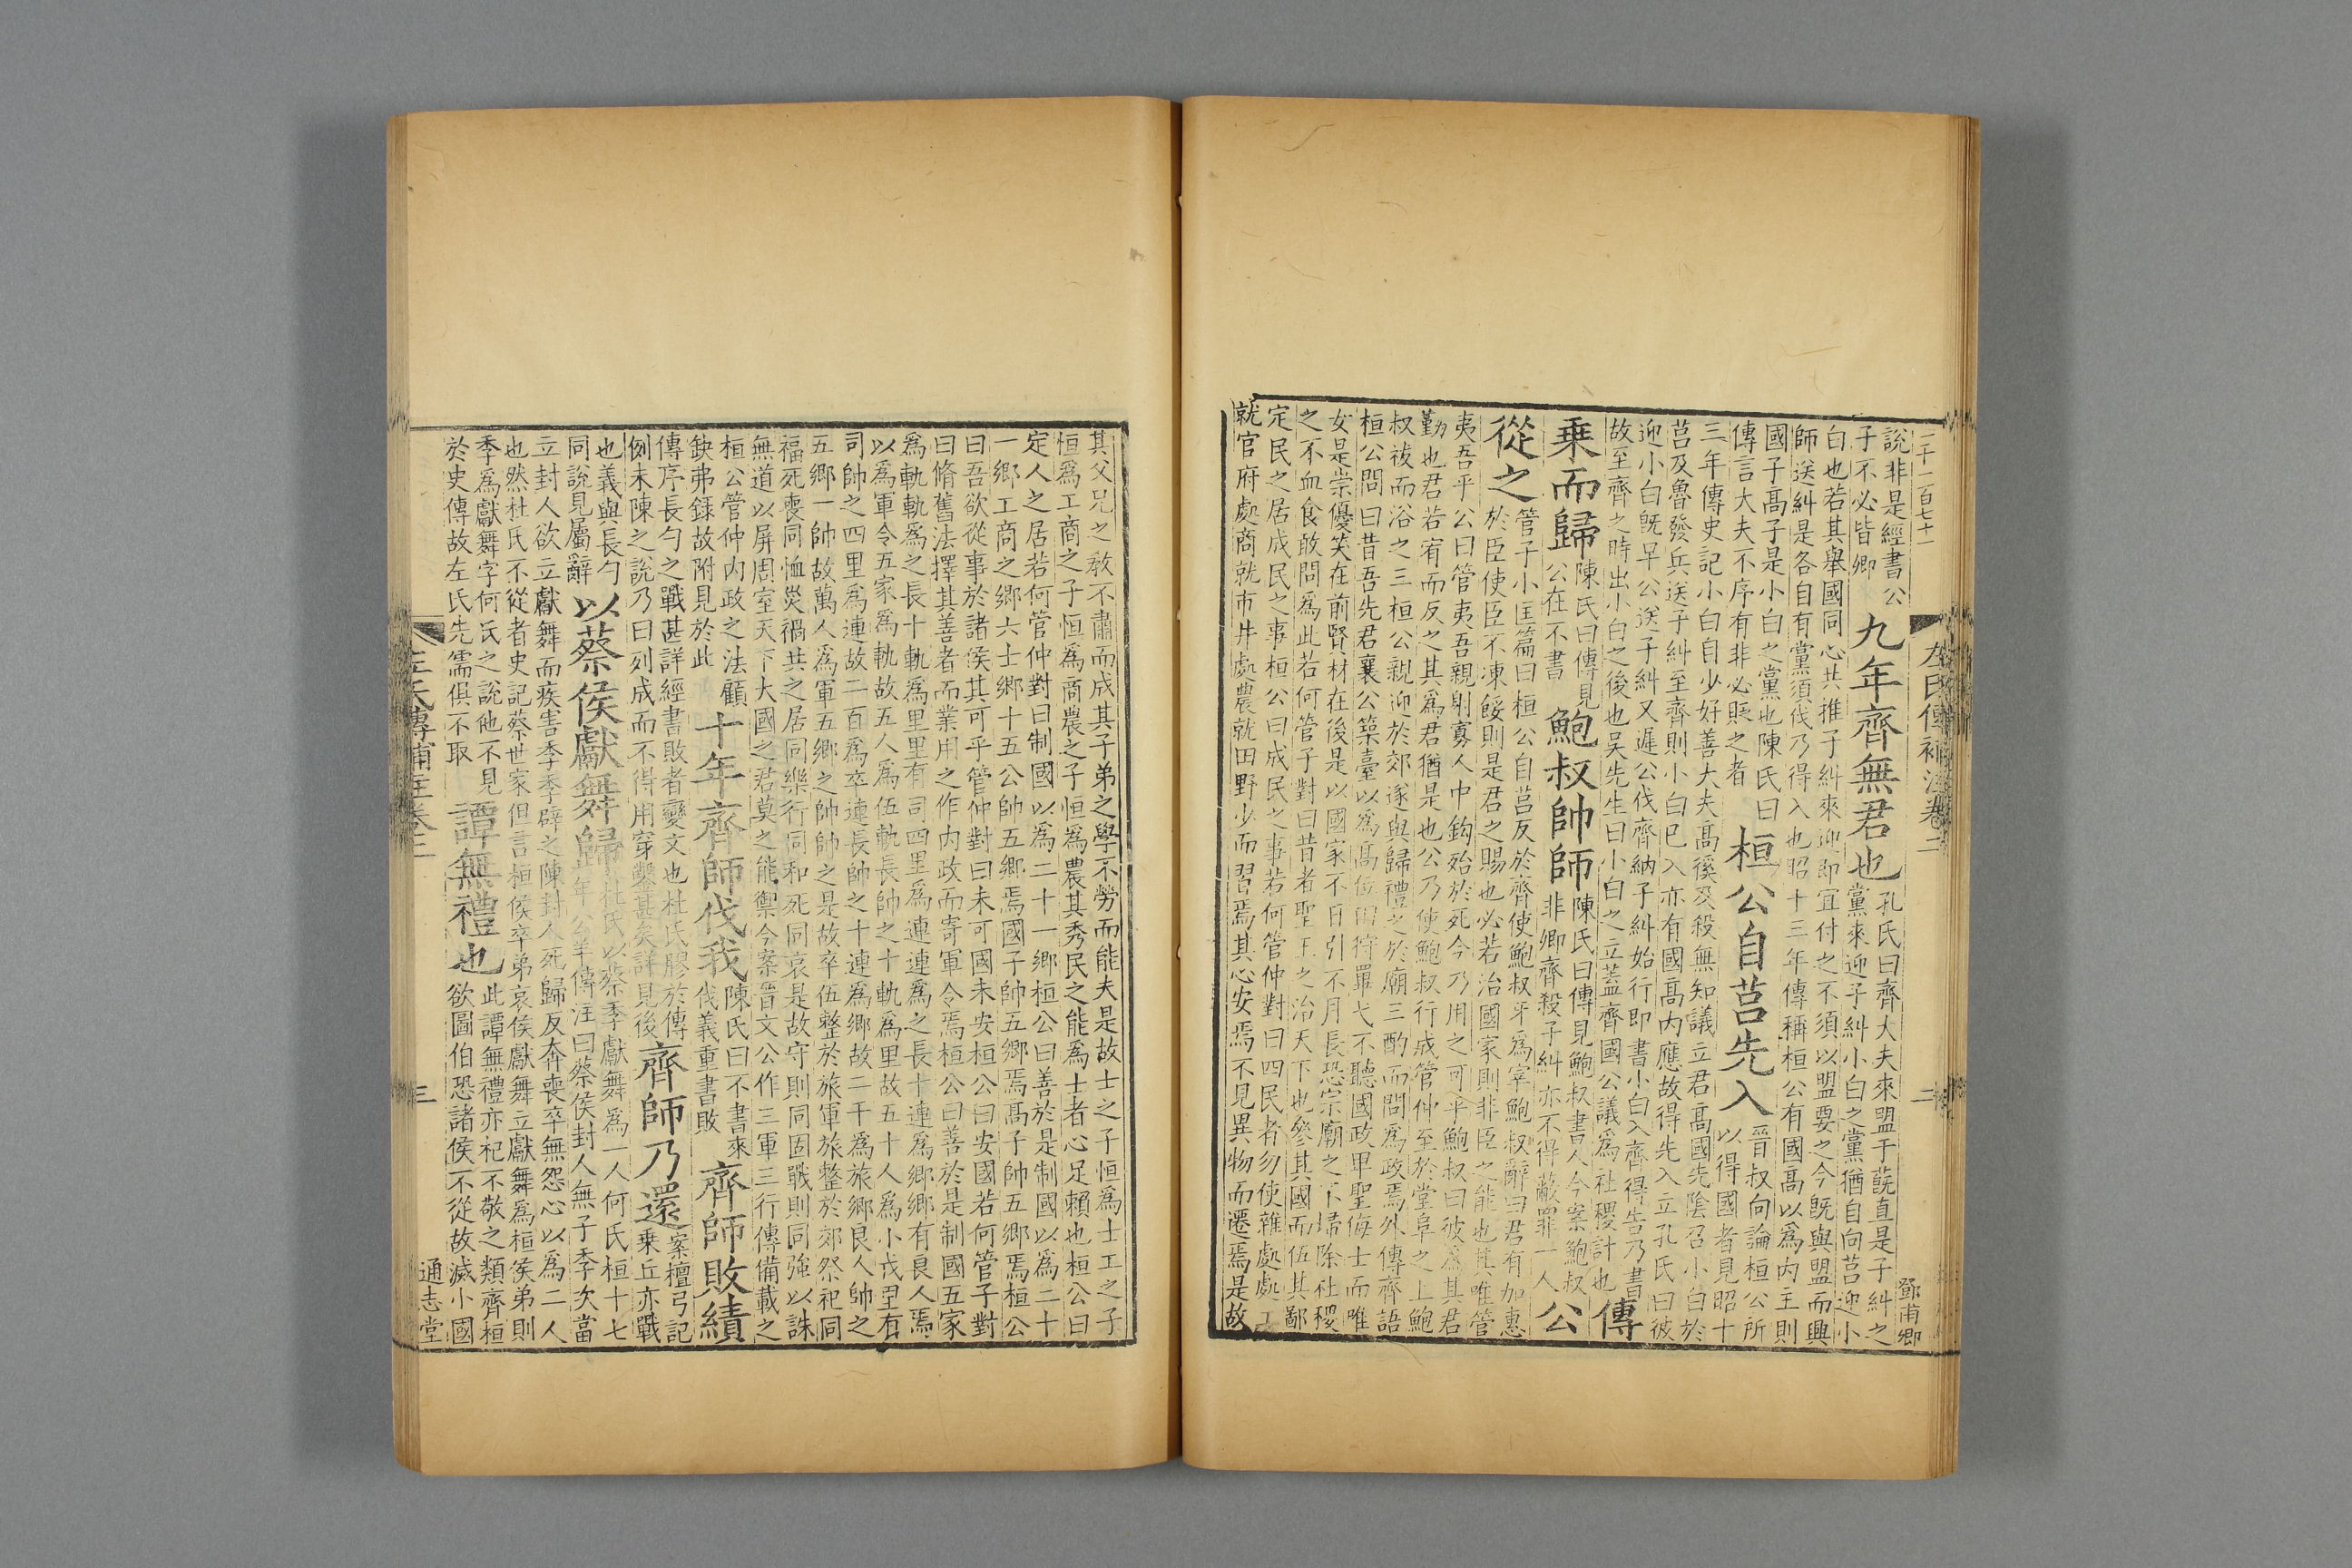 二千一百七十一
左氏傳補注卷二
二
鄧甫卿
說非是經書公
子不必皆卿
九年齊無君也
孔氏曰齊大夫來盟于蔇直是子糾之
黨來迎子糾小白之黨猶自向莒迎小
白也若其舉國同心共推子糾來迎即宜付之不須以盟要之今既與盟而興
師送糾是各自有黨須伐乃得入也昭十三年傳稱桓公有國高以爲內主則
國子高子是小白之黨也陳氏曰
傳言大夫不序有非必貶之者
桓公自莒先入
晉叔向論桓公所
以得國者見昭十
三年傳史記小白自少好善大夫高徯及殺無知議立君高國先陰召小白於
莒及魯發兵送子糾至齊則小白已入亦有國高內應故得先入立孔氏曰彼
迎小白既早公送子糾又遲公伐齊納子糾始行即書小白入齊得告乃書
故至齊之時出小白之後也吳先生曰小白之立蓋齊國公議爲社稷計也
傳
乘而歸
陳氏曰傳見
公在不書
鮑叔帥師
陳氏曰傳見鮑叔書人今案鮑叔
非卿齊殺子糾亦不得蔽罪一人
公
從之
管子小匡篇曰桓公自莒反於齊使鮑叔牙爲宰鮑叔辭曰君有加惠
於臣使臣不凍餒則是君之賜也必若治國家則非臣之能也其唯管
夷吾乎公曰管夷吾親射寡人中鈎殆於死今乃用之可乎鮑叔曰彼爲其君
勤也君若宥而反之其爲君猶是也公乃使鮑叔行成管仲至於堂阜之上鮑
叔祓而浴之三桓公親迎於郊遂與歸禮之於廟三酌而問爲政焉外傳齊語
桓公問曰昔吾先君襄公築臺以爲高位田狩罼弋不聽國政卑聖侮士而唯
女是崇優笑在前賢材在後是以國家不日引不月長恐宗廟之不掃除社稷
之不血食敢問爲此若何管子對曰昔者聖王之治天下也參其國而伍其鄙
定民之居成民之事桓公曰成民之事若何管仲對曰四民者勿使雜處處工
就官府處商就市井處農就田野少而習焉其心安焉不見異物而遷焉是故
其父兄之敎不肅而成其子弟之學不勞而能夫是故士之子恒爲士工之子
恒爲工商之子恒爲商農之子恒爲農其秀民之能爲士者必足賴也桓公曰
定人之居若何管仲對曰制國以爲二十一鄉桓公曰善於是制國以爲二十
一鄉工商之鄉六士鄉十五公帥五鄉焉國子帥五鄉焉高子帥五鄉焉桓公
曰吾欲從事於諸侯其可乎管仲對曰未可國未安桓公曰安國若何管子對
曰脩舊法擇其善者而業用之作內政而寄軍令焉桓公曰善於是制國五家
爲軌軌爲之長十軌爲里里有司四里爲連連爲之長十連爲鄉鄉有良人焉
以爲軍令五家爲軌故五人爲伍軌長帥之十軌爲里故五十人爲小戎里有
司帥之四里爲連故二百爲卒連長帥之十連爲鄉故二千爲旅鄉良人帥之
五鄉一帥故萬人爲軍五鄉之帥帥之是故卒伍整於旅軍旅整於郊祭祀同
福死喪同恤災禍共之居同樂行同和死同哀是故守則同固戰則同強以誅
無道以屏周室天下大國之君莫之能禦今案晉文公作三軍三行傳備載之
桓公管仲內政之法顧
缺弗録故附見於此
十年齊師伐我
陳氏曰不書來
伐義重書敗
齊師敗績
傳序長勺之戰甚詳經書敗者變文也杜氏膠於傳
例未陳之說乃曰列成而不得用穿鑿甚矣詳見後
齊師乃還
案檀弓記
乗丘亦戰
也義與長勺
同說見屬辭
以蔡侯獻舞歸
杜氏以蔡季獻舞爲一人何氏桓十七
年公羊傳注曰蔡侯封人無子季次當
立封人欲立獻舞而疾害季季辟之陳封人死歸反奔喪卒無怨心以爲二人
也然杜氏不從者史記蔡世家但言桓侯卒弟哀侯獻舞立獻舞爲桓侯弟則
季爲獻舞字何氏之說他不見
於史傳故左氏先儒俱不取
譚無禮也
此譚無禮亦祀不敬之類齊桓
欲圖伯恐諸侯不從故滅小國
左氏傳補注卷二
三
通志堂